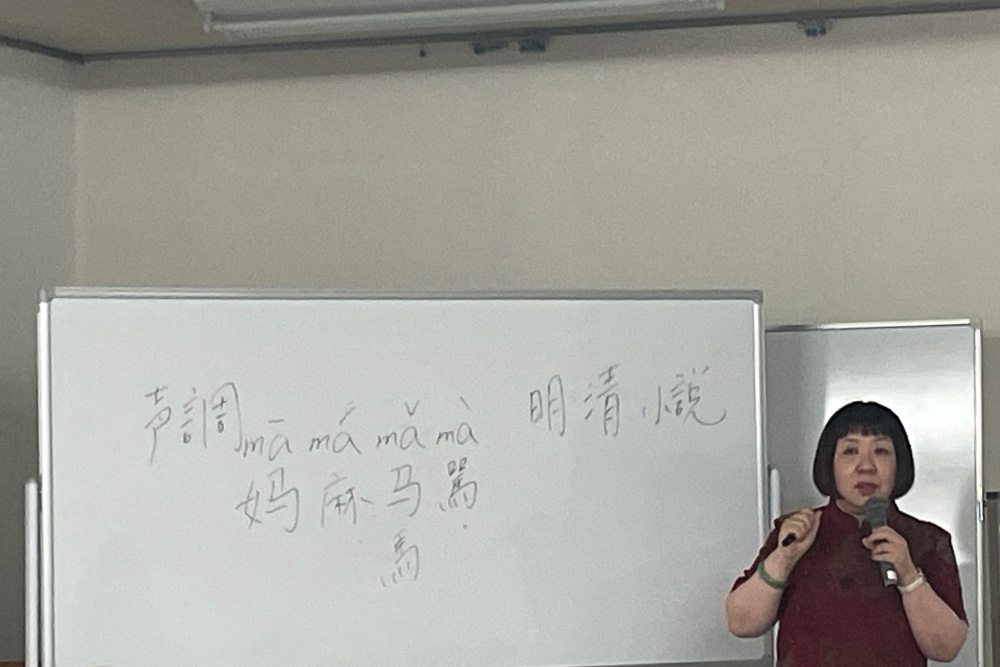 声調 mā má mǎ mà
妈 麻 马 罵
馬
明清小説